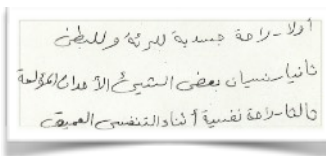 أولا - راحة جسدية للرئة و للبطن
ثانيا - نسيان بعض الشيئ الأحداث المؤلمة
ثالثا - راحة نفسية أثناء التنفس العميق